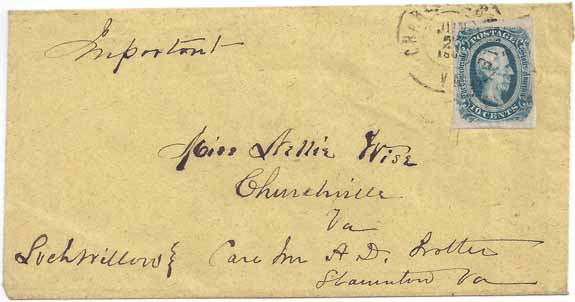 Important
POSTAGE
10 CENTS
Miss Nellie Wise
Churchville
Va
Loch Willow
Care Mr A. D. Trotter
Staunton Va